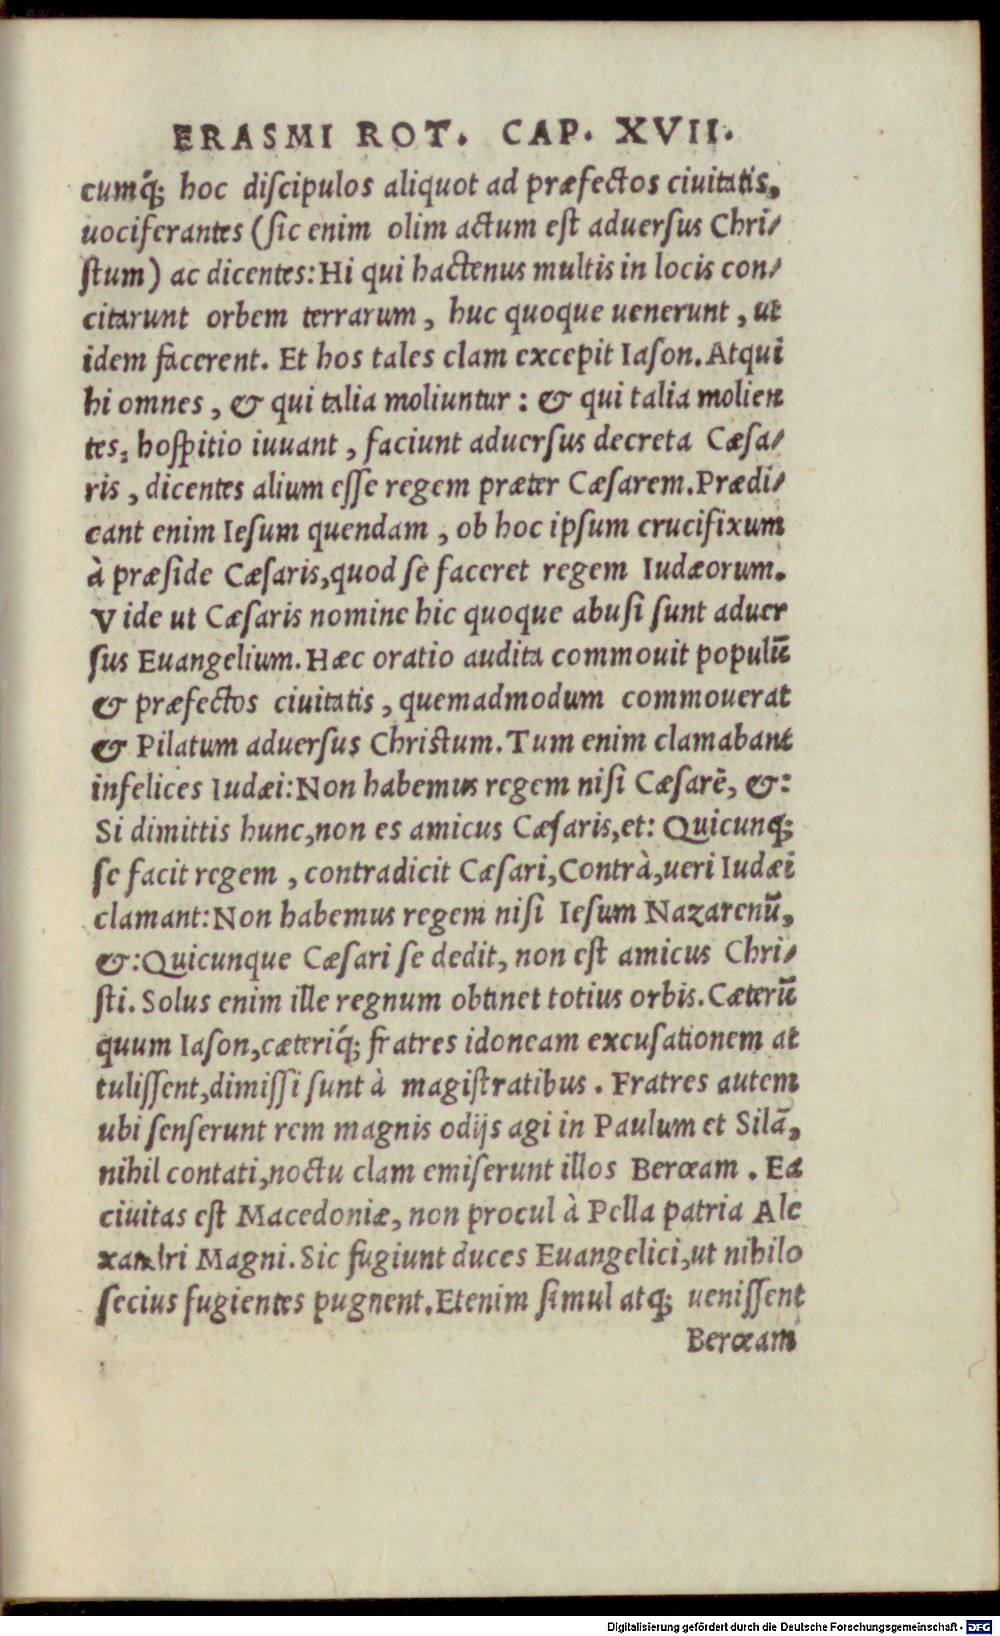 ERASMI ROT. CAP. XVII.
cumq́; hoc diſcipulos aliquot ad præfectos ciuitatis,
uociferantes (ſic enim olim actum eſt aduerſus Chri/
ſtum) ac dicentes: Hi qui hactenus multis in locis con/
citarunt orbem terrarum, huc quoque uenerunt, ut
idem facerent. Et hos tales clam excepit Iaſon. Atqui
hi omnes, & qui talia moliuntur: & qui talia molien
tes, hoſpitio iuuant, faciunt aduerſus decreta Cæſa/
ris, dicentes alium eſſe regem præter Cæſarem. Prædi/
cant enim Ieſum quendam, ob hoc ipſum crucifixum
à præſide Cæſaris, quod ſe faceret regem Iudæorum.
Vide ut Cæſaris nomine hic quoque abuſi ſunt aduer
ſus Euangelium. Hæc oratio audita commouit populū
& præfectos ciuitatis, quemadmodum commouerat
& Pilatum aduerſus Chriſtum. Tum enim clamabant
infelices Iudæi: Non habemus regem niſi Cæſarē, &:
Si dimittis hunc, non es amicus Cæſaris, et: Quicunq;
ſe facit regem, contradicit Cæſari, Contrà, ueri Iudæi
clamant: Non habemus regem niſi Ieſum Nazarenū,
&: Quicunque Cæſari ſe dedit, non eſt amicus Chri/
ſti. Solus enim ille regnum obtinet totius orbis. Cæterū
quum Iaſon, cæteriq́; fratres idoneam excuſationem at
tuliſſent, dimiſſi ſunt à magiſtratibus. Fratres autem
ubi ſenſerunt rem magnis odijs agi in Paulum et Silā,
nihil contati, noctu clam emiſerunt illos Berœam. Ea
ciuitas eſt Macedoniæ, non procul à Pella patria Ale
xandri Magni. Sic fugiunt duces Euangelici, ut nihilo
ſecius fugientes pugnent. Etenim ſimul atq; ueniſſent
Berœam
Digitalisierung gefördert durch die Deutsche Forschungsgemeinschaft - DFG